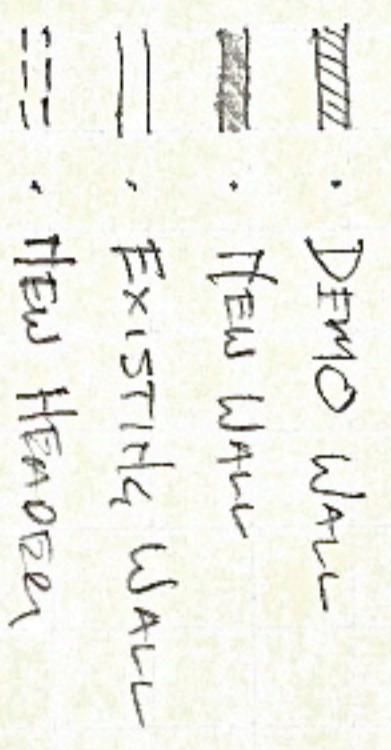 DEMO WALL
NEW WALL
EXISTING WALL
NEW HEADER